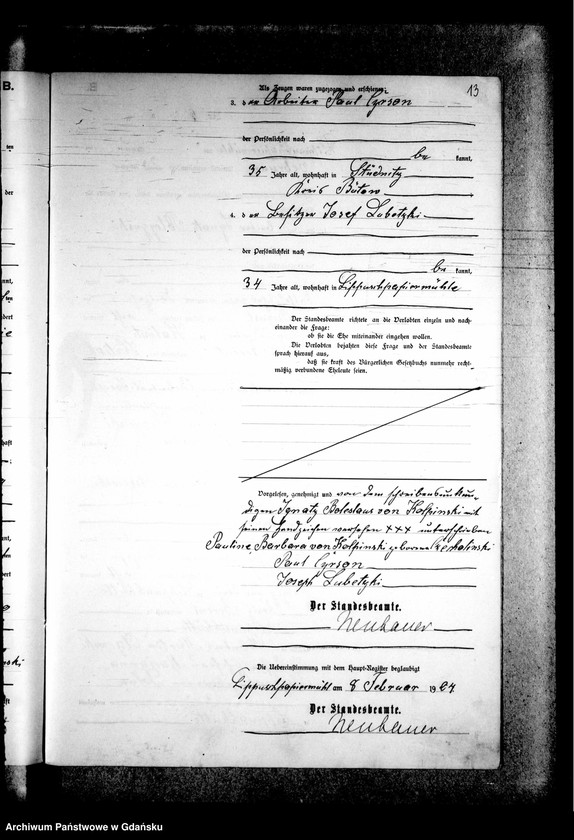 B.
13
Als Zeugen waren zugezogen und erschienen:
3. der Arbeiter Paul Cyrson
der Persönlichkeit nach
be kannt,
35 Jahre alt, wohnhaft in Stüdnitz
Kreis Bütow
4. der Besitzer Josef Lubetzki
der Persönlichkeit nach
be kannt,
34 Jahre alt, wohnhaft in Lippuschpapiermühle
Der Standesbeamte richtete an die Verlobten einzeln und nach-
einander die Frage:
ob sie die Ehe miteinander eingehen wollen.
Die Verlobten bejahten diese Frage und der Standesbeamte
sprach hierauf aus,
daß sie kraft des Bürgerlichen Gesetzbuchs nunmehr recht-
mäßig verbundene Eheleute seien.
Vorgelesen, genehmigt und von dem schreibensunkun-
digen Ignatz Boleslaus von Kolpinski mit
seinen Handzeichen versehen +++ unterschrieben
Pauline Barbara von Kolpinski geborene
Paul Cyrson
Joseph Lubetzki
Der Standesbeamte.
Neubauer
Die Uebereinstimmung mit dem Haupt-Register beglaubigt
Lippuschpapiermühl am 8 Februar 1924
Der Standesbeamte.
Neubauer
Archiwum Państwowe w Gdańsku